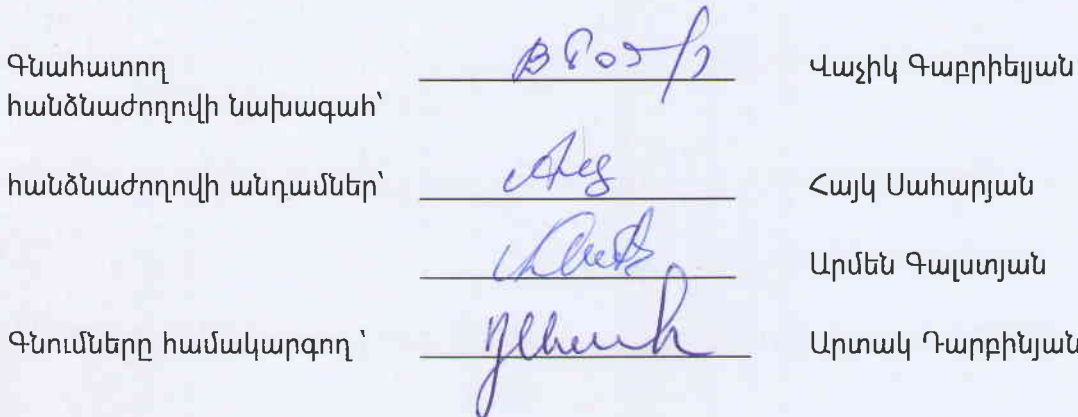 Գնահատող
հանձնաժողովի նախագահ՝
Վաչիկ Գաբրիելյան
հանձնաժողովի անդամներ՝
Հայկ Սահարյան
Արմեն Գալստյան
Գնումները համակարգող ՝
Արտակ Դարբինյան